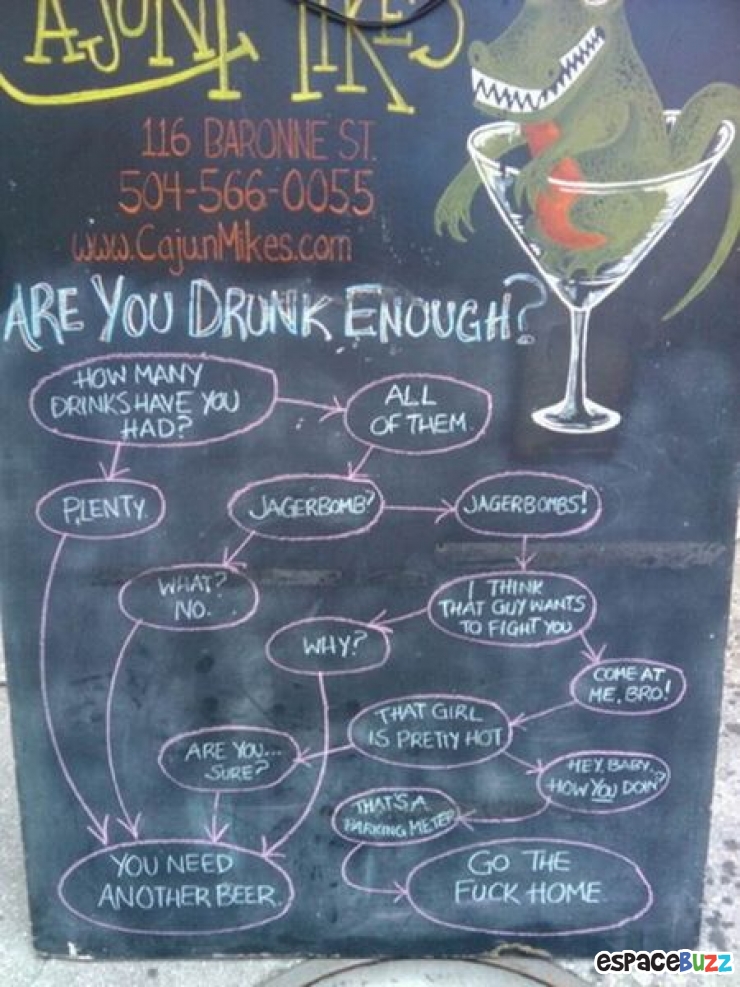 CAJUN MIKE'S
116 BARONNE ST.
504-566-0055
www.CajunMikes.com
ARE YOU DRUNK ENOUGH?
HOW MANY
DRINKS HAVE YOU
HAD?
ALL
OF THEM.
PLENTY.
JAGERBOMB?
JAGERBOMBS!
WHAT?
NO.
I THINK
THAT GUY WANTS
TO FIGHT YOU
WHY?
COME AT
ME, BRO!
THAT GIRL
IS PRETTY HOT
ARE YOU...
SURE?
HEY, BABY..
HOW YOU DOIN?
THAT'S A
PARKING METER
YOU NEED
ANOTHER BEER.
GO THE
FUCK HOME.
espaceBuzz